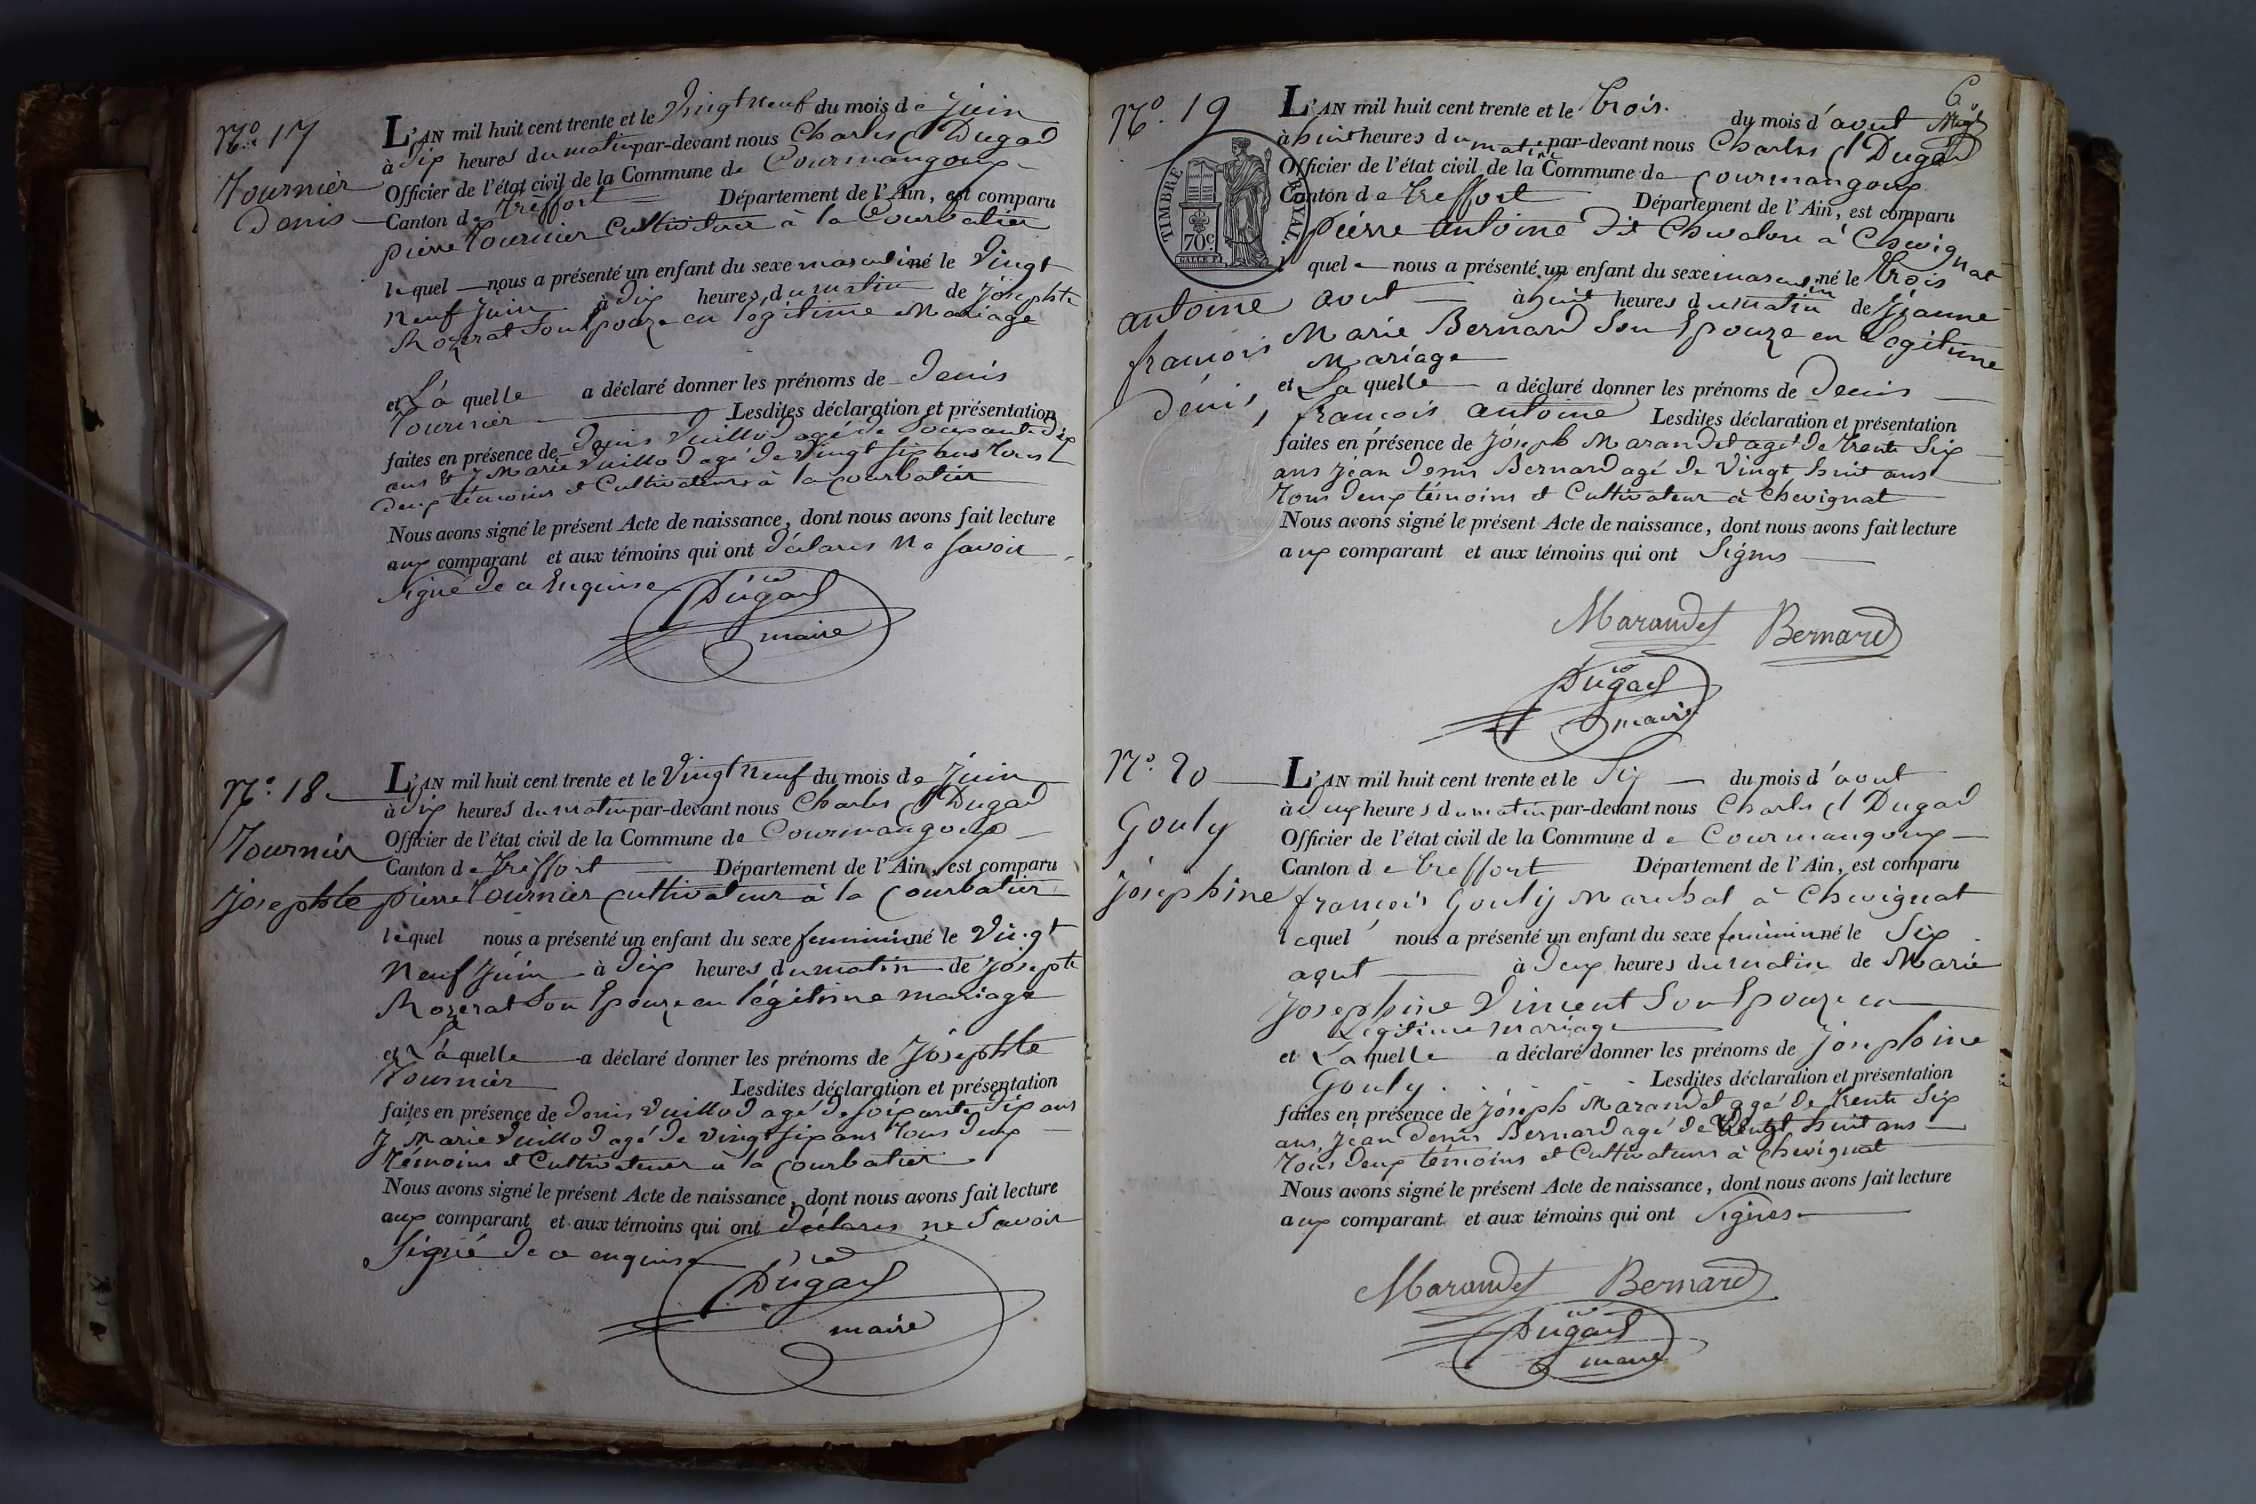 N.º 17
Tournier
Denis
L'AN mil huit cent trente et le Vingt neuf du mois de juin
à Dix heures du matin par-devant nous Charles Dugad
Officier de l'état civil de la Commune de Courmangoux
Canton de Treffort Département de l'Ain, est comparu
pierre Tournier Cultivateur à la Courbatier
lequel nous a présenté un enfant du sexe masculin né le Vingt
neuf Juin à dix heures du matin de Josephte
Mozerat Son Epouze en légitime Mariage
et La quelle a déclaré donner les prénoms de Denis
Tournier Lesdites déclaration et présentation
faites en présence de Denis Vuillod agé de Soixante dix
ans & J Marie Vuillod agé de Vingt six ans Tous
deux témoins et Cultivateurs à la Courbatier
Nous avons signé le présent Acte de naissance, dont nous avons fait lecture
aux comparant et aux témoins qui ont déclarés ne Savoir
Signé de ce Enquise
Dugad
maire
N.º 18
Tournier
josephte
L'AN mil huit cent trente et le Vingt neuf du mois de Juin
à Dix heures du matin par-devant nous Charles Dugad
Officier de l'état civil de la Commune de Courmangoux
Canton de Treffort Département de l'Ain, est comparu
pierre Tournier cultivateur à la Courbatier
lequel nous a présenté un enfant du sexe feminin né le Vingt
neuf Juin à Dix heures du matin de Josepte
Mozerat Son Epouze en légitime mariage
et La quelle a déclaré donner les prénoms de Josephte
Tournier Lesdites déclaration et présentation
faites en présence de Denis Vuillod agé de soixante Dix ans
J Marie Vuillod agé de vingt six ans Tous deux
témoins et Cultivateur à la Courbatier
Nous avons signé le présent Acte de naissance, dont nous avons fait lecture
aux comparant et aux témoins qui ont déclarés ne Savoir
Signé de ce enquise
Dugad
maire
6
N.º 19
TIMBRE ROYAL
70 c.
antoine
francois
denis
L'AN mil huit cent trente et le trois du mois d'aout
à huit heures du matin par-devant nous Charles Dugad
Officier de l'état civil de la Commune de Courmangoux
Canton de treffort Département de l'Ain, est comparu
pierre antoine dit Chevalou à Chevignat
lequel nous a présenté un enfant du sexe masculin né le trois
aout à huit heures du matin de Jeanne
Marie Bernard Son Epouze en Legitime
Mariage
et La quelle a déclaré donner les prénoms de Denis
francois antoine Lesdites déclaration et présentation
faites en présence de Joseph Marandet agé de trente Six
ans Jean denis Bernard agé de Vingt huit ans
Tous deux témoins et Cultivateur à Chevignat
Nous avons signé le présent Acte de naissance, dont nous avons fait lecture
aux comparant et aux témoins qui ont Signés
Marandet Bernard
Dugad
maire
N.º 20
Gouly
josephine
L'AN mil huit cent trente et le Six du mois d'aout
à deux heures du matin par-devant nous Charles Dugad
Officier de l'état civil de la Commune de Courmangoux
Canton de treffort Département de l'Ain, est comparu
francois Gouly Marechal à Chevignat
lequel nous a présenté un enfant du sexe feminin né le Six
aout à deux heures du matin de Marie
Josephine Vincent Son Epouze en
Legitime mariage
et La quelle a déclaré donner les prénoms de Josephine
Gouly. Lesdites déclaration et présentation
faites en présence de Joseph Marandet agé de trente Six
ans, Jean Denis Bernard agé de Vingt huit ans
Tous deux témoins et Cultivateurs à Chevignat
Nous avons signé le présent Acte de naissance, dont nous avons fait lecture
aux comparant et aux témoins qui ont Signés
Marandet Bernard
Dugad
maire